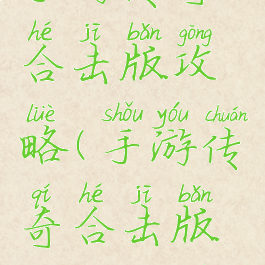 hé jī bǎn gōng
合击版攻
lüè shǒu yóu chuán
略(手游传
qí hé jī bǎn
奇合击版